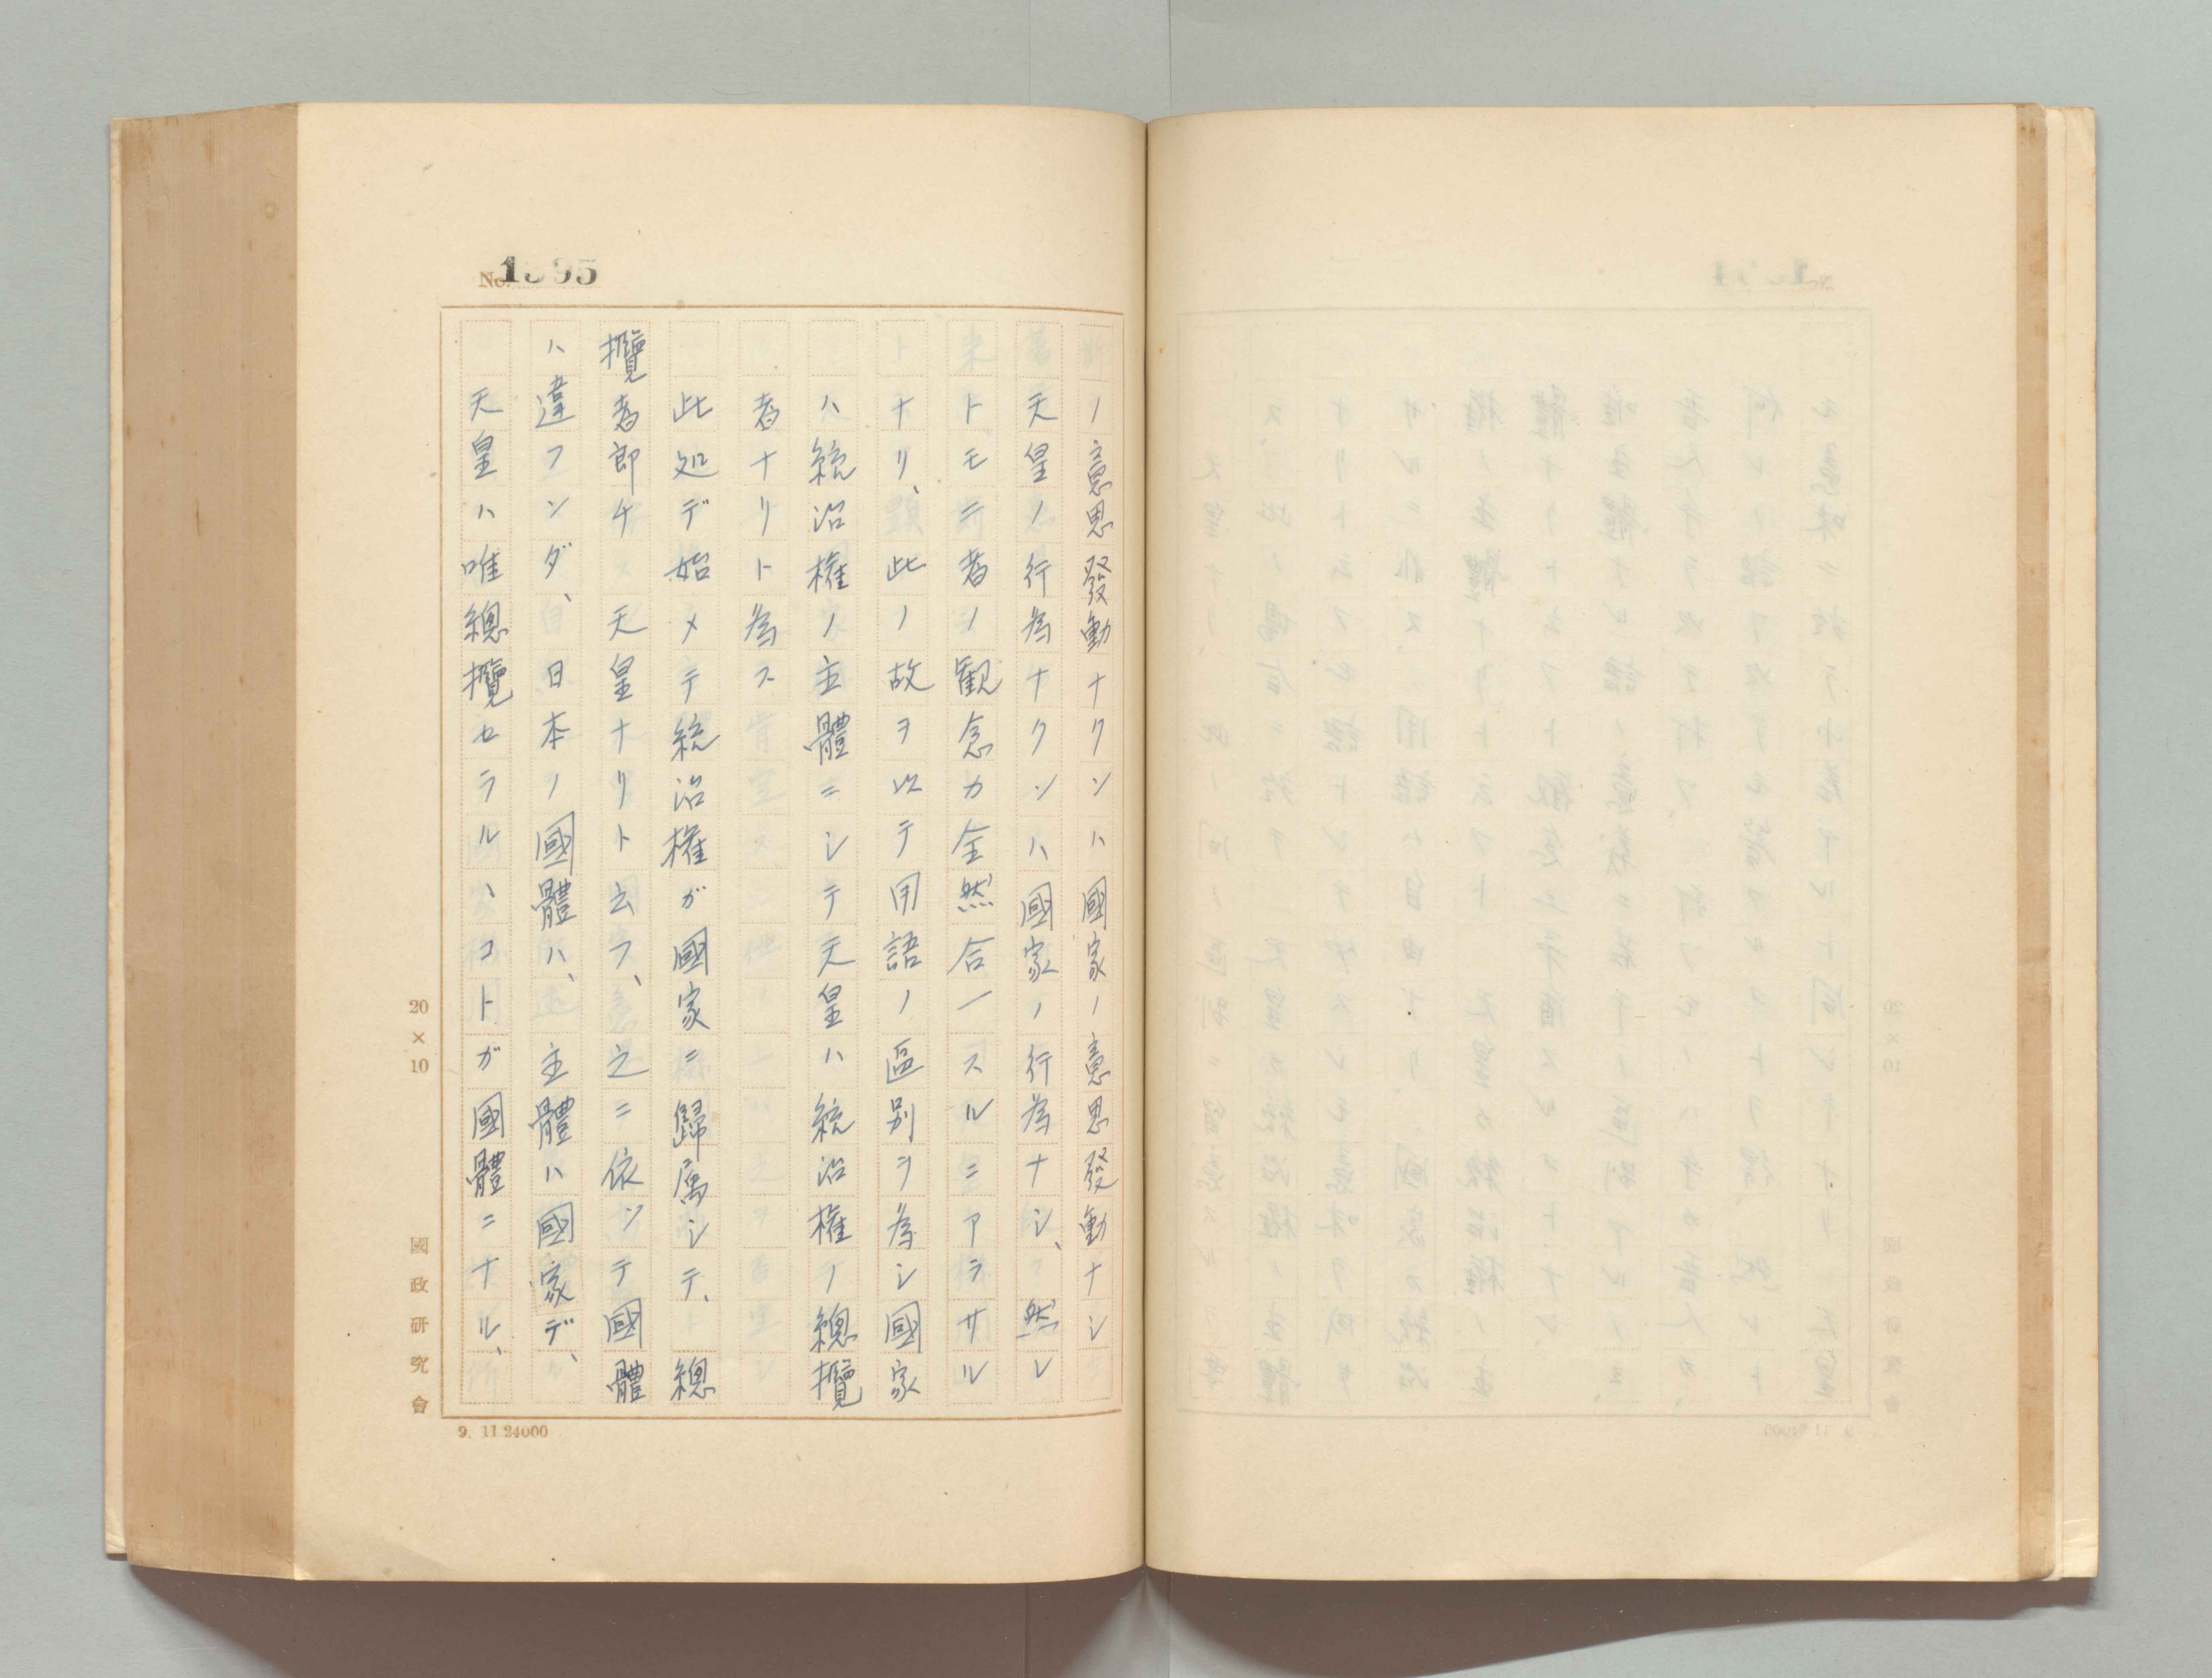 No. 1595
ノ意思發動ナクンハ國家ノ意思發動ナシ
天皇ノ行為ナクンハ國家ノ行為ナシ、然レ
トモ二者ノ観念カ全然合一スルニアラサル
ナリ、此ノ故ヲ以テ用語ノ區別ヲ為シ國家
ハ統治權ノ主體ニシテ天皇ハ統治權ノ總攬
者ナリト為ス
此処デ始メテ統治權ガ國家ニ歸属シテ、總
攬者即チ 天皇ナリト云フ、之ニ依ツテ國體
ハ違フンダ、日本ノ國體ハ、主體ハ國家デ、
天皇ハ唯總攬セラルヽコトガ國體ニナル、
20×10
國政研究會
9. 11 24000